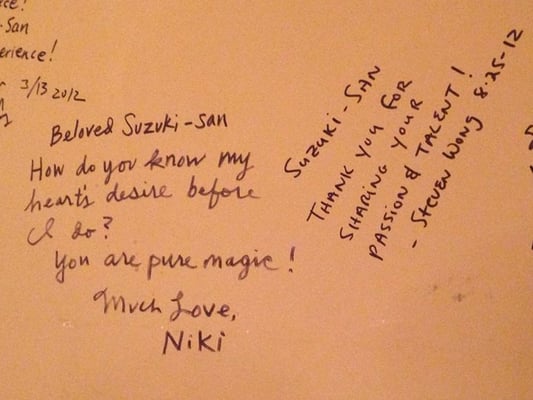 -San
erience!
3/13 2012
Beloved Suzuki-san
How do you know my
heart's desire before
I do?
You are pure magic!
Much Love,
Niki
SUZUKI-SAN
THANK YOU FOR
SHARING YOUR
PASSION & TALENT!
- STEVEN WONG 8-25-12